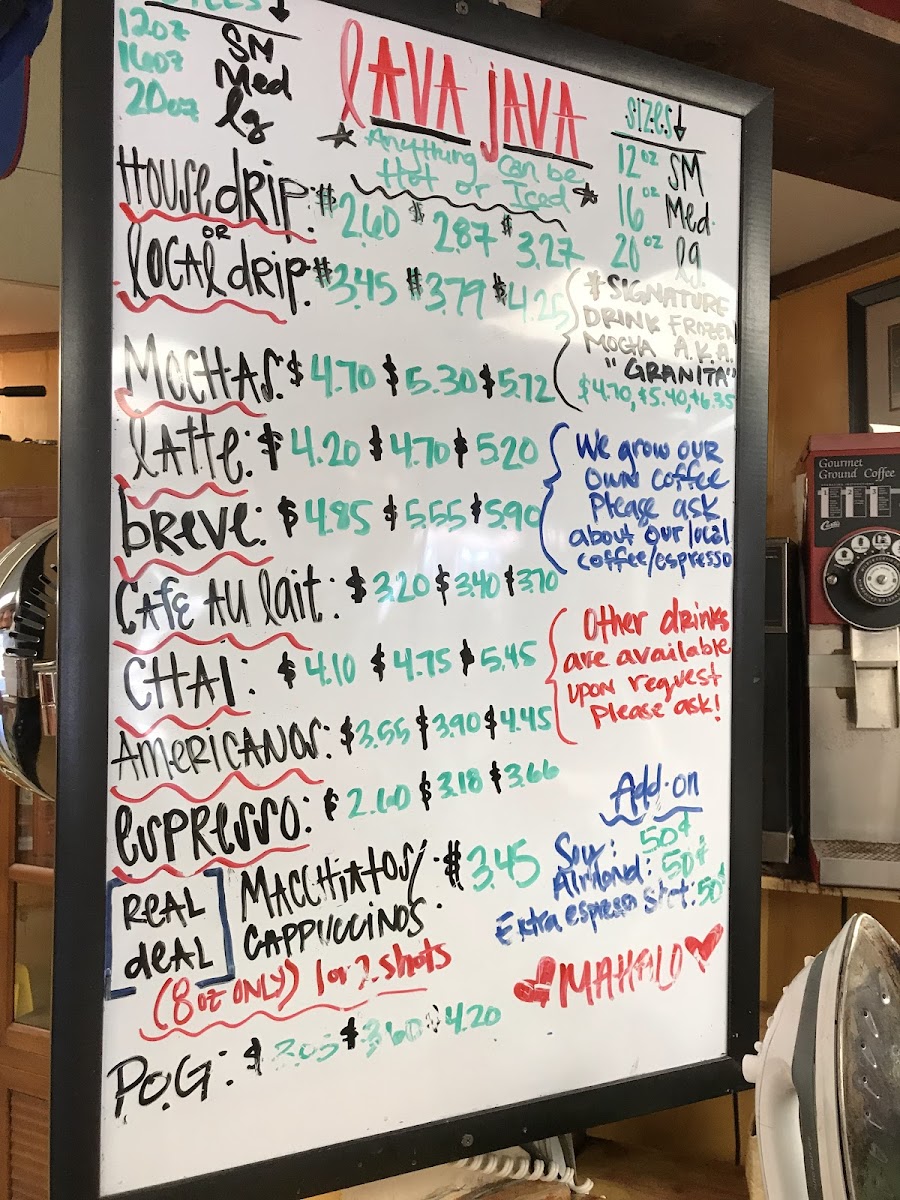 SIZES↓
12oz SM
16oz Med
20oz lg
LAVA JAVA
★ Anything can be
Hot or Iced ★
SIZES↓
12oz SM
16oz Med.
20oz lg.
House drip: $2.60 $2.87 $3.27
OR
local drip: $3.45 $3.79 $4.25
* SIGNATURE
DRINK FROZEN
MOCHA A.K.A.
"GRANITA"
$4.70, $5.40, $6.35
MOCHAS: $4.70 $5.30 $5.72
LATTE: $4.20 $4.70 $5.20
We grow our
own coffee
Please ask
about our local
coffee/espresso
breve: $4.85 $5.55 $5.90
CAFE AU lait: $3.20 $3.40 $3.70
Other drinks
are available
upon request
please ask!
CHAI: $4.10 $4.75 $5.45
AMERICANOS: $3.55 $3.90 $4.45
espresso: $2.60 $3.18 $3.66
Add-on
Soy: 50¢
Almond: 50¢
Extra espresso shot: 50¢
REAL
deAL
MACCHIATOS/
CAPPUCCINOS: $3.45
(8oz ONLY) 1 or 2 shots
MAHALO
P.O.G: $3.05 $3.60 $4.20
Gourmet
Ground Coffee
Curtis